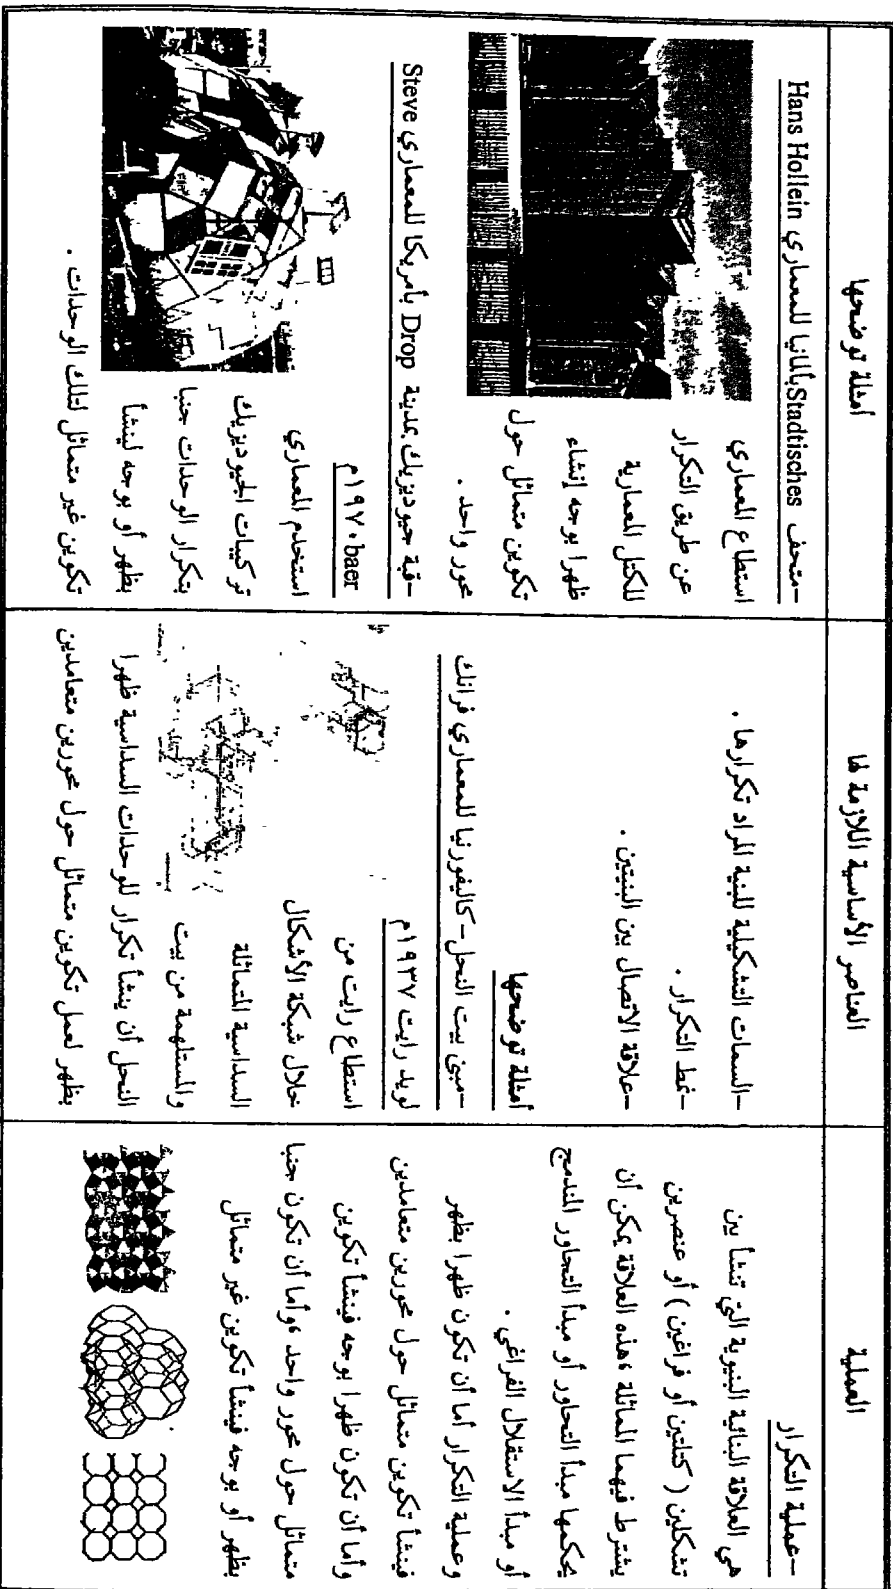 العملية
-عملية التكرار
هي العلاقة البنائية البنيوية التي تنشأ بين
تشكلين ( كتلتين أو فراغين ) أو عنصرين
يشترط فيهما المماثلة ،هذه العلاقة يمكن أن
يحكمها مبدأ التحاور أو مبدأ التجاور المندمج
أو مبدأ الاستقلال الفراغي .
وعملية التكرار أما أن تكون ظهرا بظهر
فينشأ تكوين متماثل حول محورين متعامدين
وأما أن تكون ظهرا بوجه فينشأ تكوين
متماثل حول محور واحد ،وأما أن تكون جنبا
بظهر أو بوجه فينشأ تكوين غير متماثل
العناصر الأساسية اللازمة لها
-السمات التشكيلية للبنية المراد تكرارها .
-نمط التكرار .
-علاقة الاتصال بين البنيتين .
أمثلة توضحها
-مبنى بيت النحل-كاليفورنيا للمعماري فرانك
لويد رايت ١٩٣٧م
استطاع رايت من
خلال شبكة الأشكال
السداسية المتماثلة
والمستلهمة من بيت
النحل أن ينشأ تكرار للوحدات السداسية ظهرا
بظهر لعمل تكوين متماثل حول محورين متعامدين
أمثلة توضحها
-متحف Stadtisches بألمانيا للمعماري Hans Hollein
استطاع المعماري
عن طريق التكرار
للكتل المعمارية
ظهرا بوجه إنشاء
تكوين متماثل حول
محور واحد .
-قبة جيوديزيك بمدينة Drop بأمريكا للمعماري Steve
baer ١٩٧٠م
استخدم المعماري
تركيبات الجيوديزيك
بتكرار الوحدات جنبا
بظهر أو بوجه لينشأ
تكوين غير متماثل لتلك الوحدات .